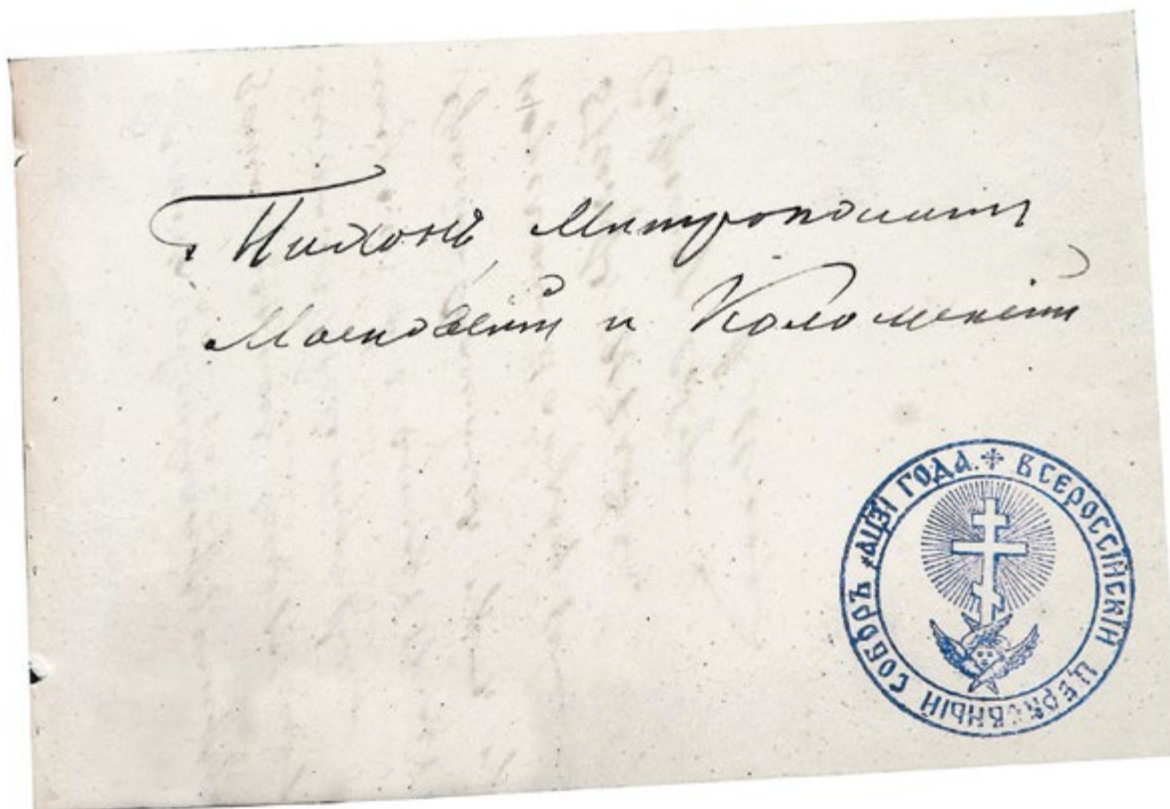 Тихонъ Митрополитъ
Московскій и Коломенскій
ВСЕРОССІЙСКІЙ ЦЕРКОВНЫЙ СОБОРЪ ҂АЦЗІ ГОДА.